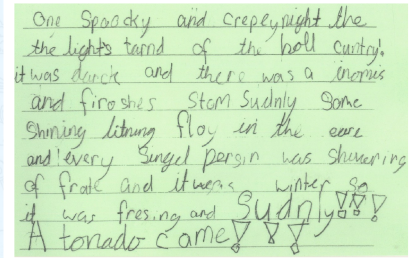 One Spoocky and crepey night the
the lights tarnd of the holl cuntry!
it was darck and there was a inomis
and firoshes Stom Sudnly Some
Shining litning floy in the eare
and every Singel persin was shivering
of frate and it was winter so
it was fresing and Sudnly!!!
A tonado came!!!